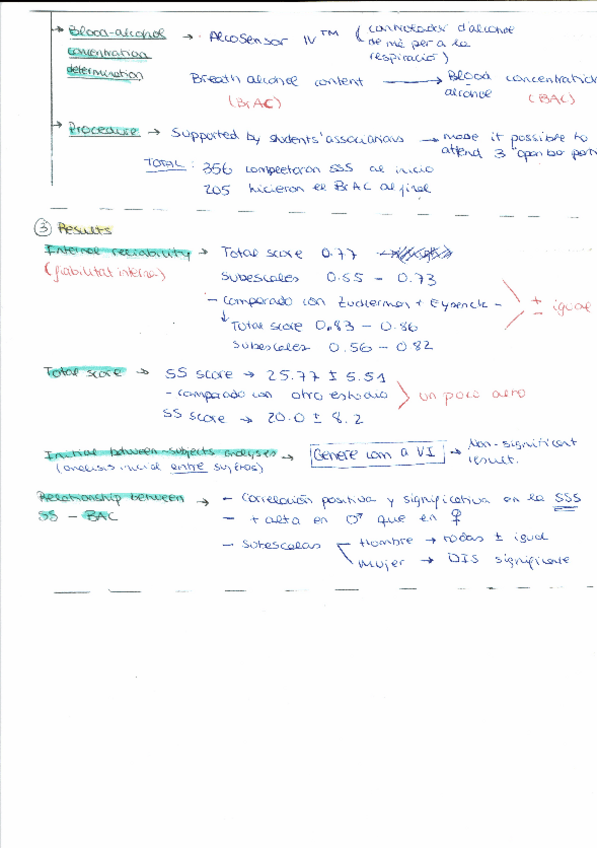 → Blood-alcohol concentration determination → · AlcoSensor IV™ (connotador d'alcohol de mà per a la respiració)
Breath alcohol content → Blood alcohol concentratio
(BrAC) (BAC)
→ Procedure → Supported by students' associations → made it possible to
attend 3 "open bar part
TOTAL: 356 completaron SSS al inicio
205 hicieron el BrAC al final
③ Results
Internal reliability → Total score 0.77
(fiabilitat interna)
Subescales 0.55 - 0.73
- comparado con Zuckerman + Eysenck - ± igual
↓ Total score 0.83 - 0.86
Subescales 0.56 - 0.82
Total score → SS score → 25.77 ± 5.51
- comparado con otro estudio un poco alto
SS score → 20.0 ± 8.2
Initial between-subjects analyses → Genere com a VI → Non-significant
(análisis inicial entre sujetos) result.
Relationship between → - Correlación positiva y significativa en la SSS
SS - BAC - + alta en ♂ que en ♀
- Subescalas Hombre → todas ± igual
Mujer → DIS significante